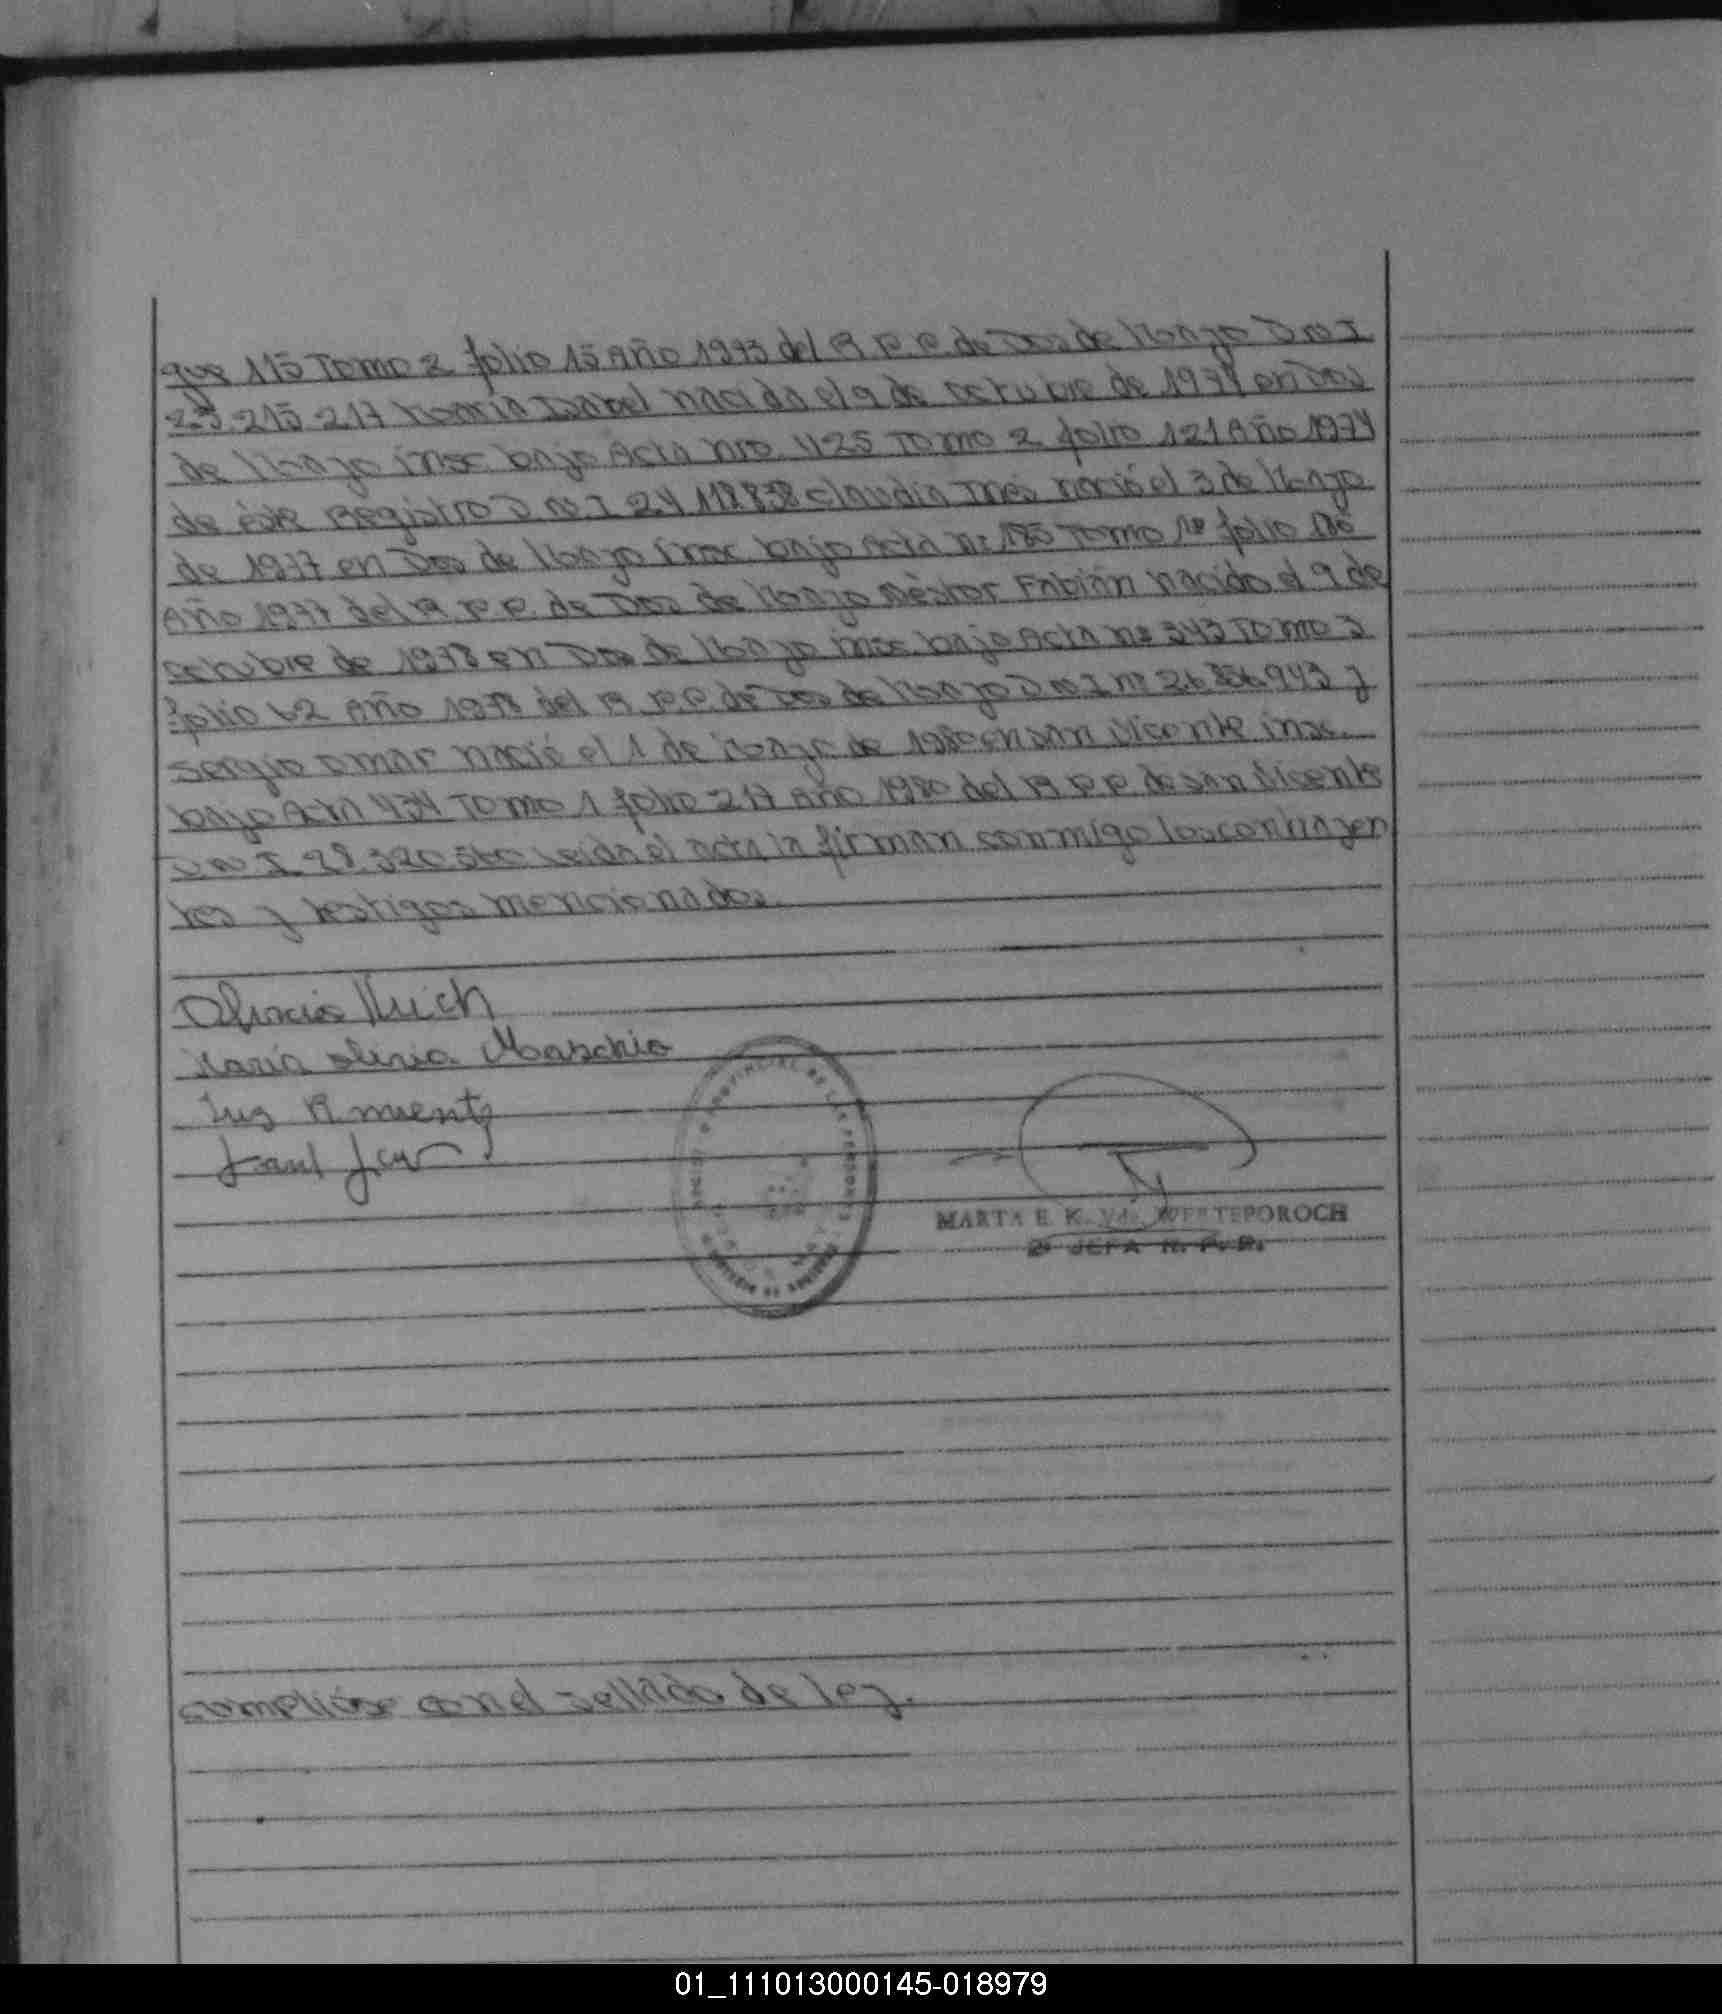 que 115 Tomo 2 folio 15 Año 1973 del R P. P. de Dos de Mayo D N I
23.215 217 María Isabel nacida el 9 de octubre de 1974 en Dos
de Mayo insc bajo Acta nro 425 Tomo 2 folio 121 Año 1974
de éste Registro D N I 24 118.838 Claudia Ines nació el 3 de Mayo
de 1977 en Dos de Mayo insc bajo Acta nº 185 Tomo 1º folio
Año 1977 del R P. P. de Dos de Mayo Néstor Fabián nacido el 9 de
octubre de 1978 en Dos de Mayo insc. bajo Acta nº 343 Tomo 3
folio 62 Año 1978 del R P.P. de Dos de Mayo D N I nº 26 836 943 y
Sergio Omar nació el 1 de Mayo de 1980 en San Vicente insc.
bajo Acta 434 Tomo 1 folio 217 Año 1980 del R P.P. de San Vicente
D N I 28.320 560 leída el acta la firman conmigo los contrayen
tes y testigos mencionados.
María Maschio
MARTA E. K. Vda. WERTEPOROCH
2º JEFA R. P. P.
cumplióse con el sellado de ley.
01_111013000145-018979